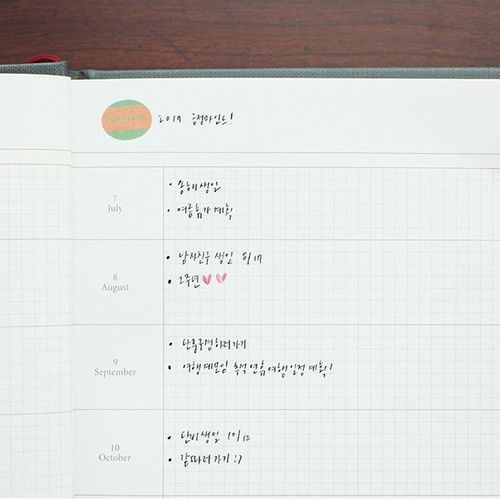 2017 긍정마인드!
7
July
• 송혜생일
• 여름휴가계획
8
August
• 남자친구 생일 8/17
• 2주년
9
September
• 단풍구경하러가기
• 여행계모임 추석연휴여행일정계획!
10
October
• 단비생일 10/12
• 감따러가기 :)